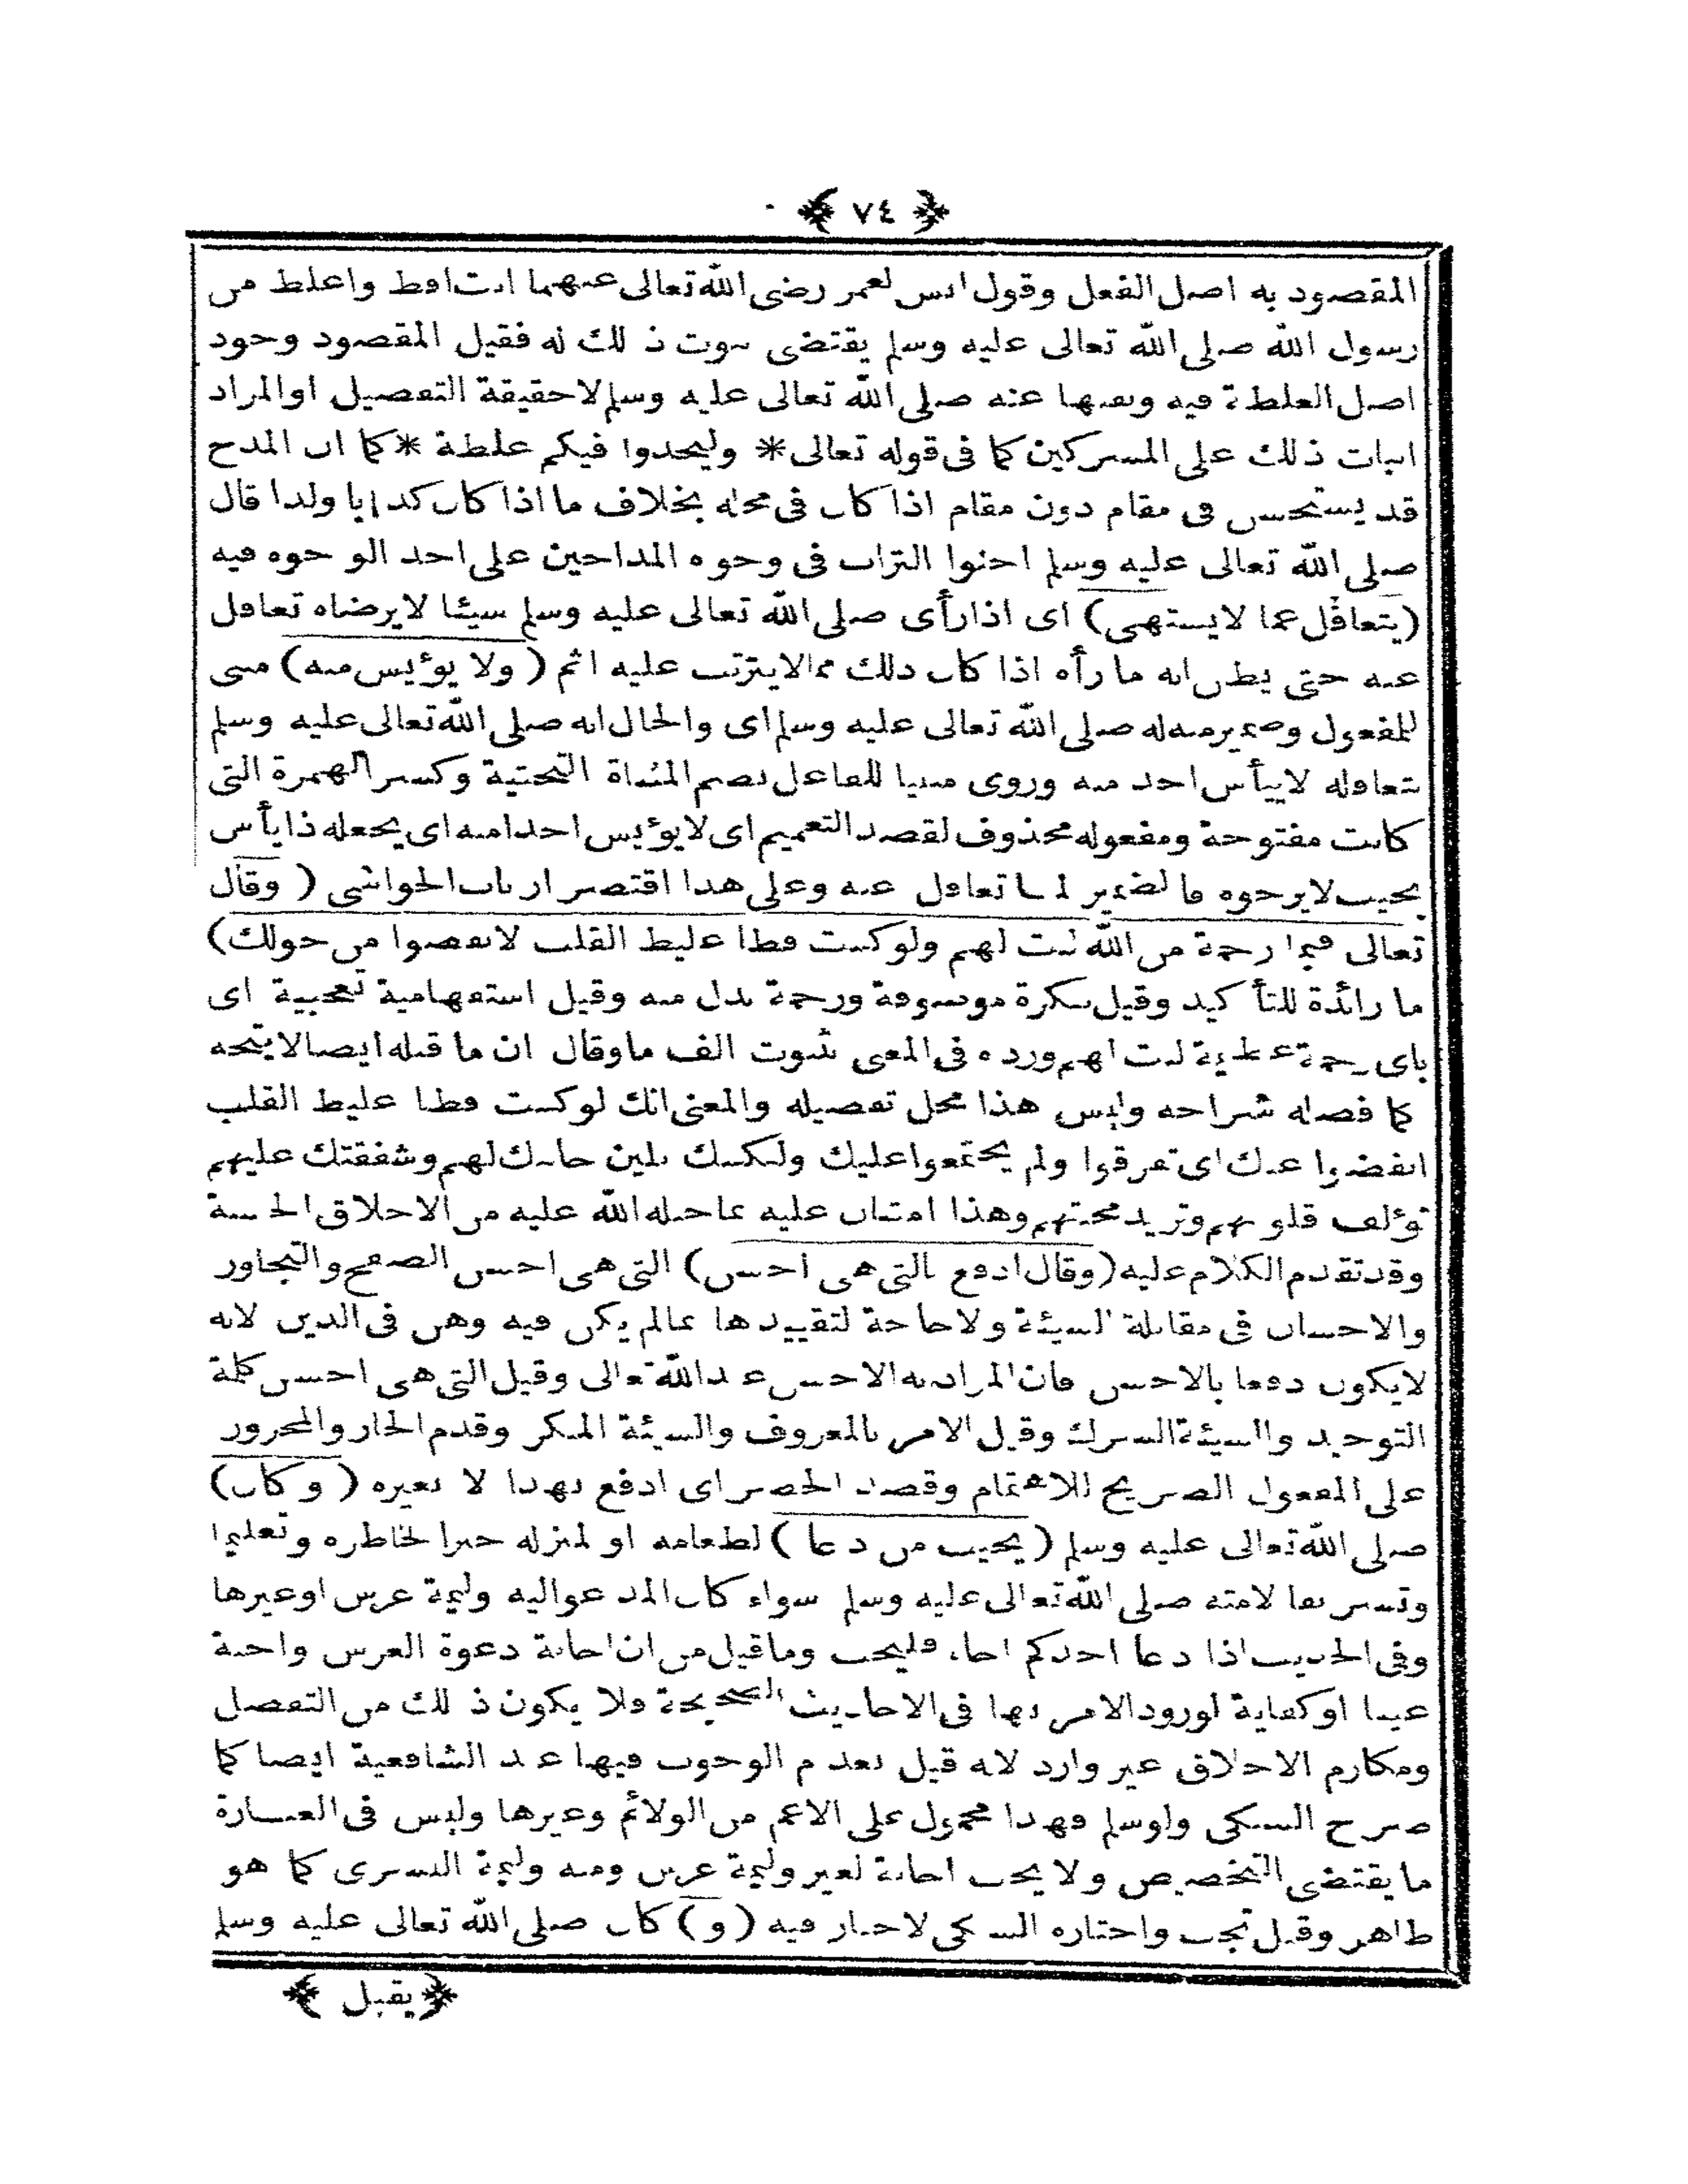 ﴿ ٧٤ ﴾
المقصود به اصل الفعل وقول انس لعمر رضى الله تعالى عنهما انت افظ واغلظ من
رسول الله صلى الله تعالى عليه وسلم يقتضى ثبوت ذلك له فقيل المقصود وجود
اصل الغلظة فيه ونفيها عنه صلى الله تعالى عليه وسلم لاحقيقة التفضيل اوالمراد
اثبات ذلك على المشركين كما فى قوله تعالى * وليجدوا فيكم غلظة * كما ان المدح
قد يستحسن فى مقام دون مقام اذا كان فى محله بخلاف ما اذا كان كذابا ولذا قال
صلى الله تعالى عليه وسلم احثوا التراب فى وجوه المداحين على احد الوجوه فيه
(يتغافل عما لايشتهى) اى اذا رأى صلى الله تعالى عليه وسلم شيئا لايرضاه تغافل
عنه حتى يظن انه ما رأه اذا كان ذلك مما لايترتب عليه اثم (ولا يؤيس منه) مبنى
للمفعول وضمير منه له صلى الله تعالى عليه وسلم اى والحال انه صلى الله تعالى عليه وسلم
بتغافله لاييأس احد منه وروى مبنيا للفاعل بضم المثناة التحتية وكسر الهمزة التى
كانت مفتوحة ومفعوله محذوف لقصد التعميم اى لايؤيس احدا منه اى يجعله ذا يأس
بحيث لايرجوه فالضمير لما تغافل عنه وعلى هذا اقتصر ارباب الحواشى (وقال
تعالى فبما رحمة من الله لنت لهم ولو كنت فظا غليظ القلب لانفضوا من حولك)
ما زائدة للتأكيد وقيل نكرة موصوفة ورحمة بدل منه وقيل استفهامية تعجبية اى
باى رحمة عظيمة لنت لهم ورده فى المغنى بثبوت الف ما وقال ان ما قبله ايضا لايتجه
كما فصله شراحه وليس هذا محل تفصيله والمعنى انك لو كنت فظا غليظ القلب
انفضوا عنك اى تفرقوا ولم يجتمعوا عليك ولكنك بلين جانبك لهم وشفقتك عليهم
تؤلف قلوبهم وتزيد محبتهم وهذا امتنان عليه بما جبله الله عليه من الاخلاق الحسنة
وقد تقدم الكلام عليه (وقال ادفع بالتى هى احسن) التى هى احسن الصفح والتجاوز
والاحسان فى مقابلة السيئة ولا حاجة لتقييدها بما لم يكن فيه وهن فى الدين لانه
لايكون دفعا بالاحسن فان المراد به الاحسن عند الله تعالى وقيل التى هى احسن كلمة
التوحيد والسيئة الشرك وقيل الامر بالمعروف والسيئة المنكر وقدم الجار والمجرور
على المفعول الصريح للاهتمام وقصد الحصر اى ادفع بهذا لا بغيره (وكان)
صلى الله تعالى عليه وسلم (يجيب من دعا) لطعامه او لمنزله جبرا لخاطره وتعليما
وتشريعا لامته صلى الله تعالى عليه وسلم سواء كان المدعو اليه وليمة عرس اوغيرها
وفى الحديث اذا دعا احدكم اخاه فليجب وما قيل من ان اجابة دعوة العرس واجبة
عينا او كفاية لورود الامر بها فى الاحاديث الصحيحة فلا يكون ذلك من التفضل
ومكارم الاخلاق غير وارد لانه قيل بعدم الوجوب فيها عند الشافعية ايضا كما
صرح السبكى ولو سلم فهذا محمول على الاعم من الولائم وغيرها وليس فى العبارة
ما يقتضى التخصيص ولا يجب اجابة لغير وليمة عرس ومنه وليمة التسرى كما هو
ظاهر وقيل تجب واختاره السبكى لاخبار فيه (و) كان صلى الله تعالى عليه وسلم
﴿ يقبل ﴾